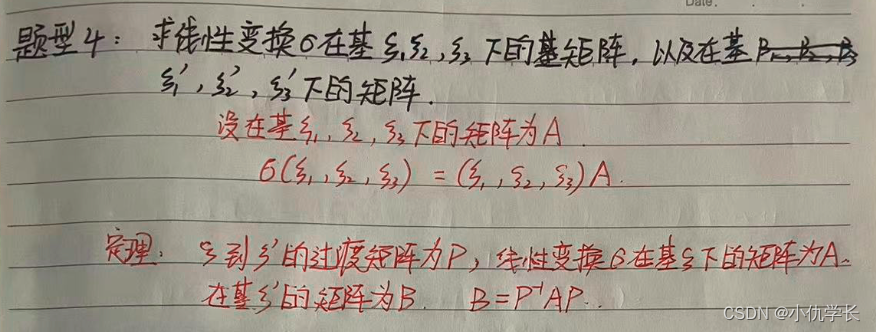 Date.
题型4：求线性变换σ在基ξ₁,ξ₂,ξ₃下的基矩阵，以及在基β₁,β₂,β₃
ξ₁′,ξ₂′,ξ₃′下的矩阵.
设在基ξ₁,ξ₂,ξ₃下的矩阵为A
σ(ξ₁,ξ₂,ξ₃)=(ξ₁,ξ₂,ξ₃)A.
定理：ξ到ξ′的过渡矩阵为P，线性变换σ在基ξ下的矩阵为A.
在基ξ′的矩阵为B. B=P⁻¹AP..
CSDN @小仇学长